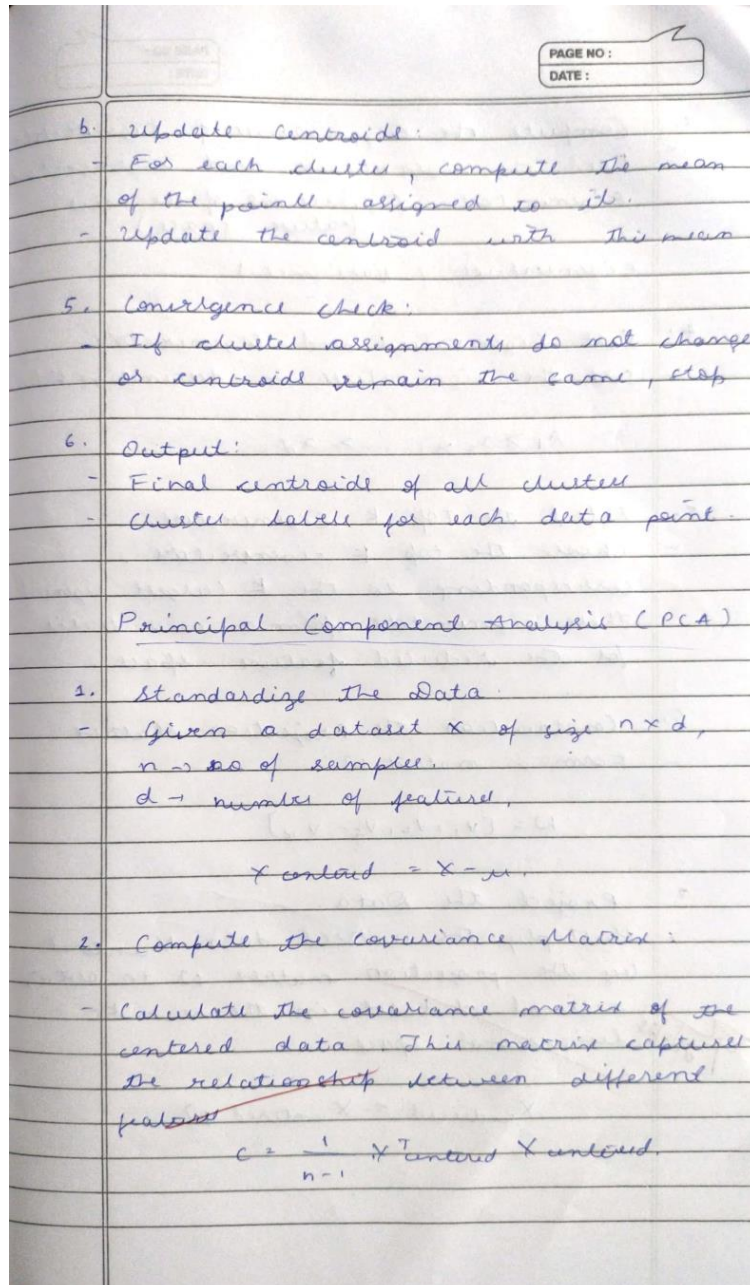 PAGE NO :
DATE :
b. Update Centroids:
- For each cluster, compute the mean
of the points assigned to it.
- Update the centroid with this mean
5. Convergence check:
- If cluster assignments do not change
or centroids remain the same, stop
6. Output:
- Final centroids of all clusters
- Cluster labels for each data point.
Principal Component Analysis (PCA)
1. Standardize the Data.
- Given a dataset X of size n x d,
n → no of samples.
d → number of features.
X centered = X - μ.
2. Compute the covariance Matrix :
- Calculate the covariance matrix of the
centered data. This matrix captures
the relationship between different
features
C = 1/(n-1) X^T centered X centered.